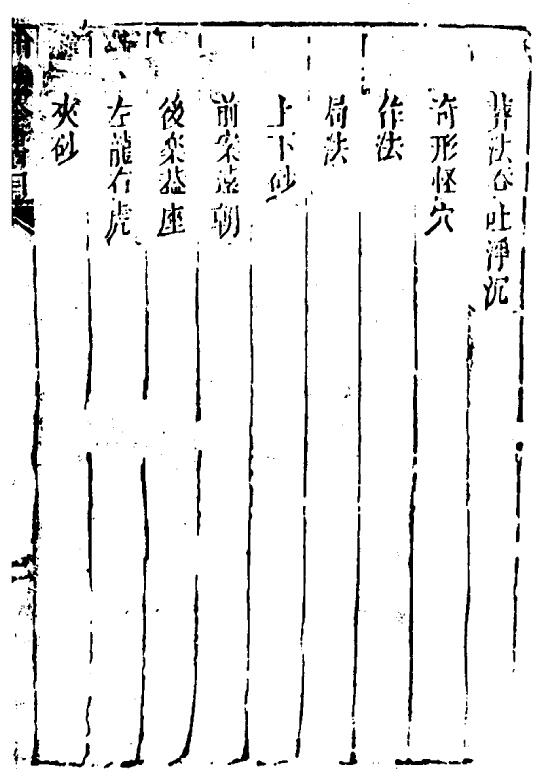 葬法吞吐浮沉
奇形怪穴
作法
局法
上下砂
前案遠朝
後楽葢座
左龍右虎
夾砂